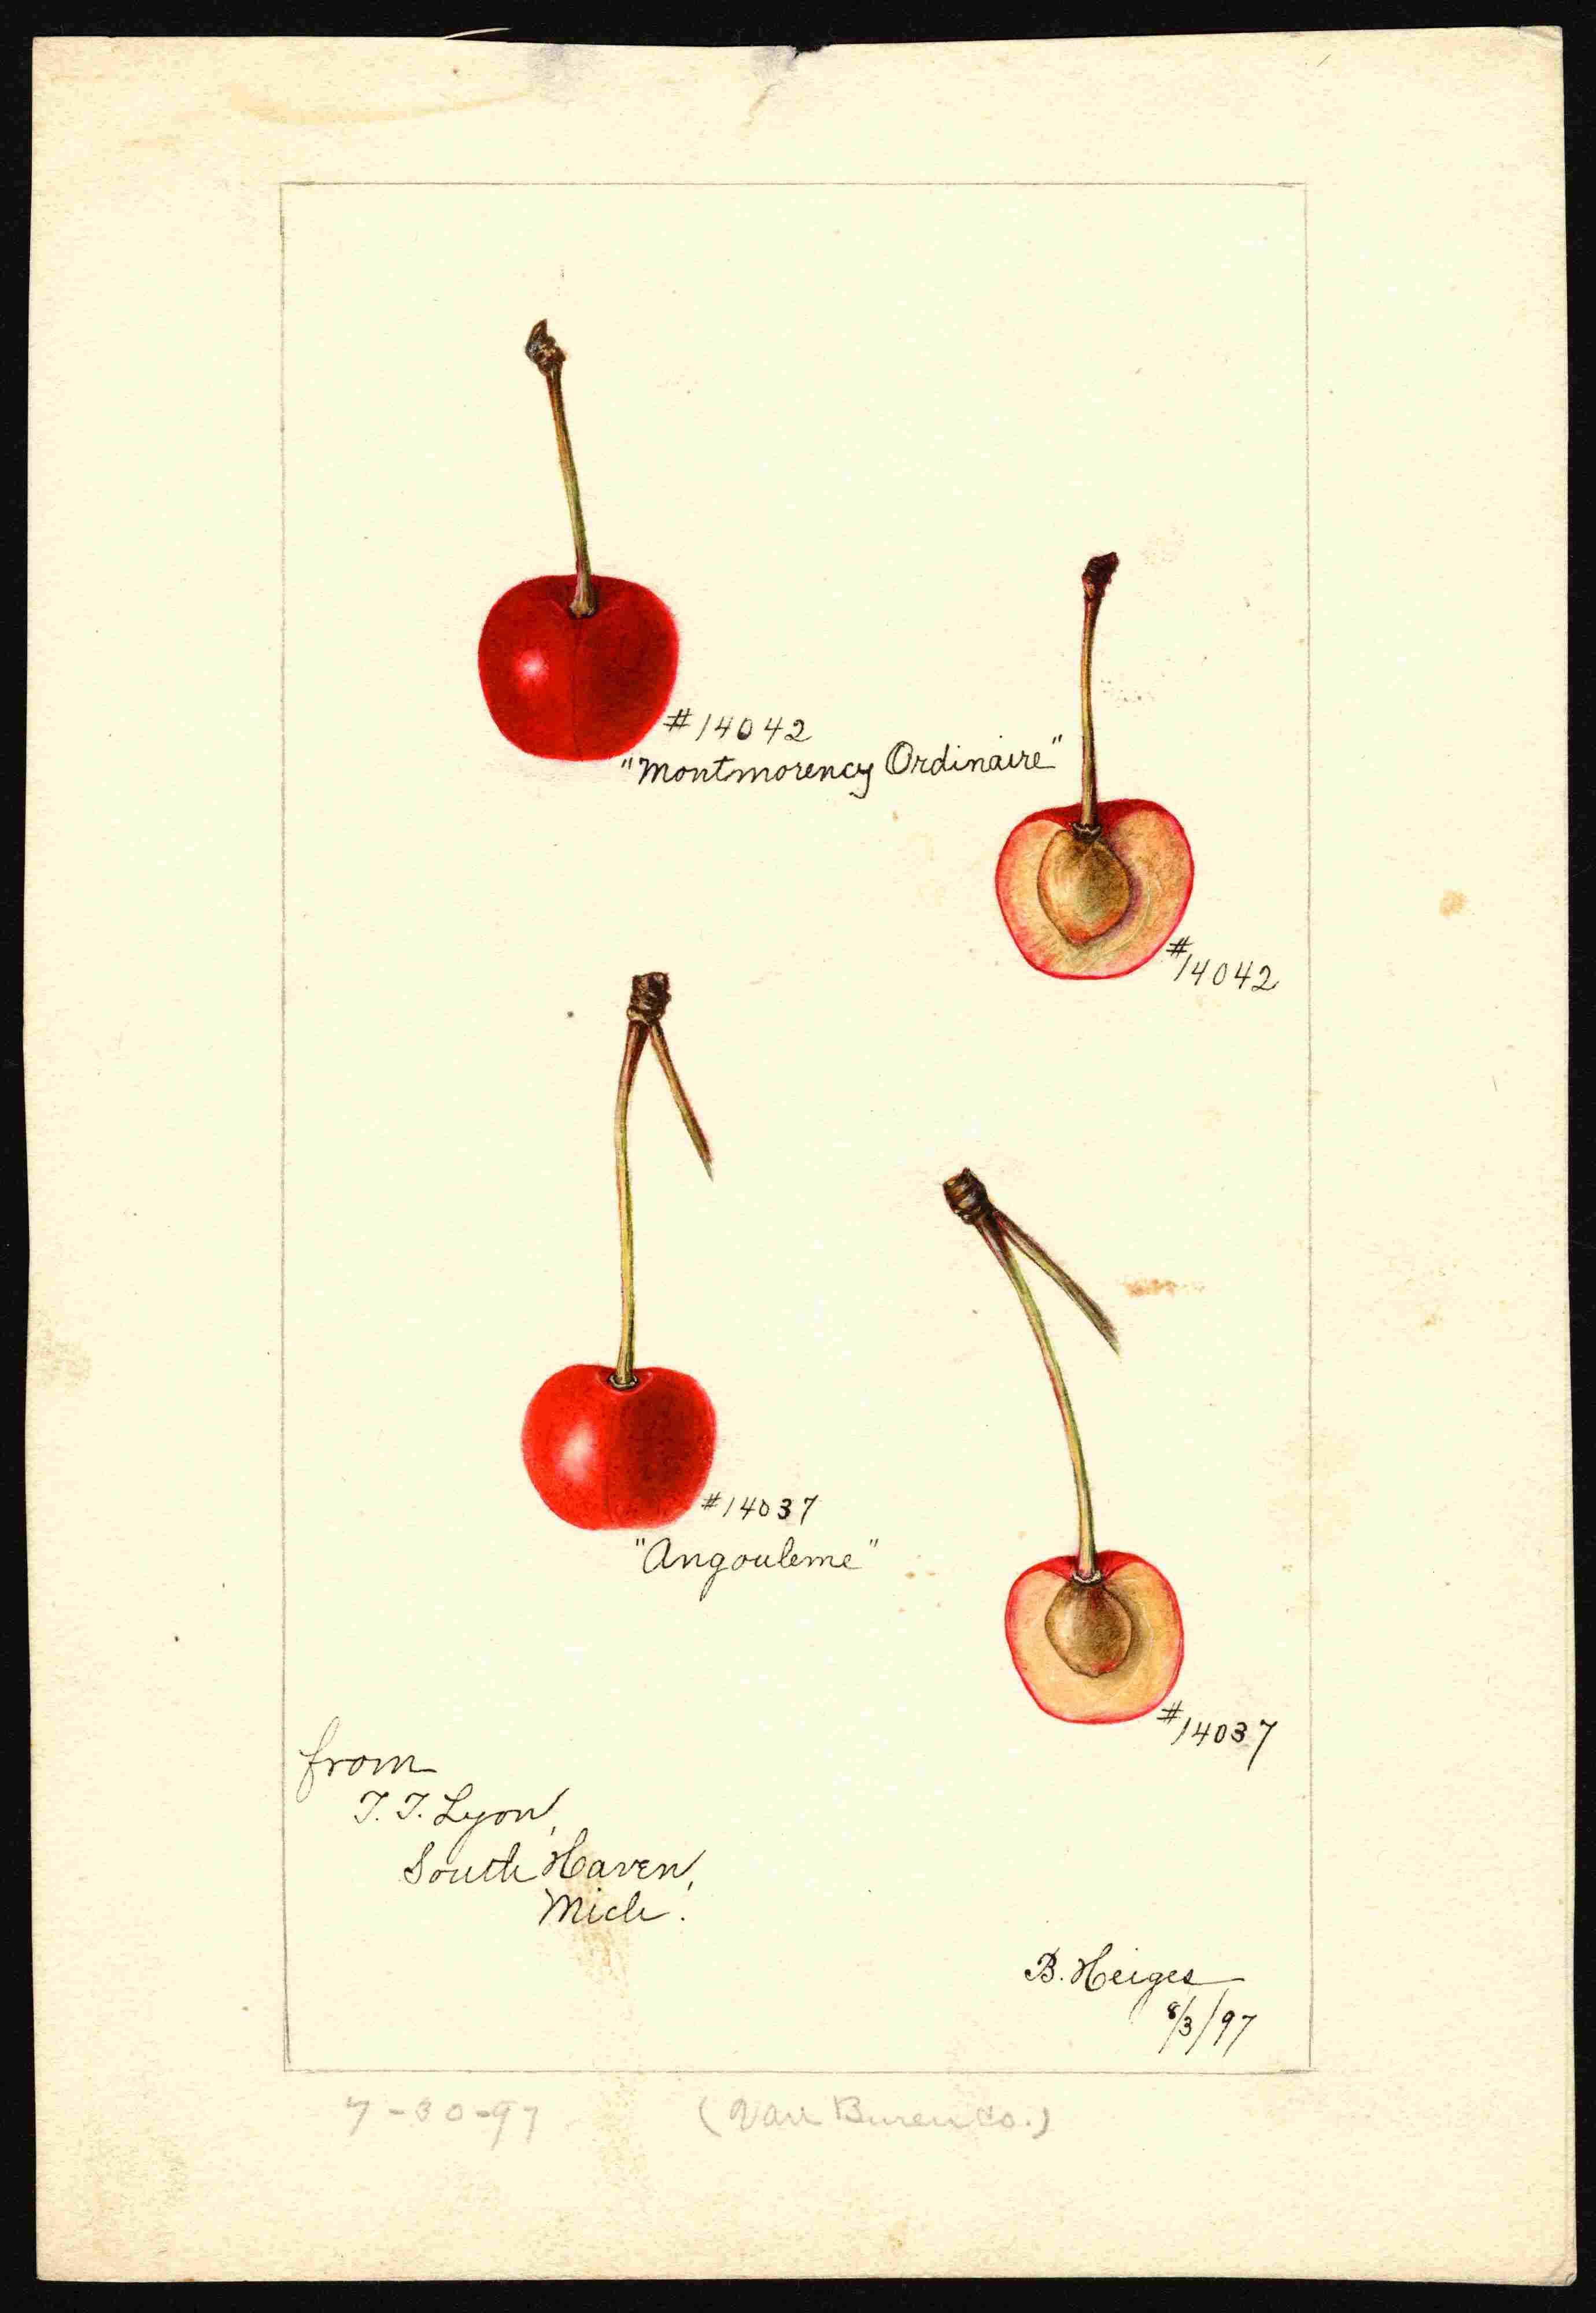 #14042
"Montmorency Ordinaire"
#14042
#14037
"Angouleme"
#14037
from
T. T. Lyon,
South Haven,
Mich.
B. Heiges
8/3/97
7-30-97 (Van Buren Co.)